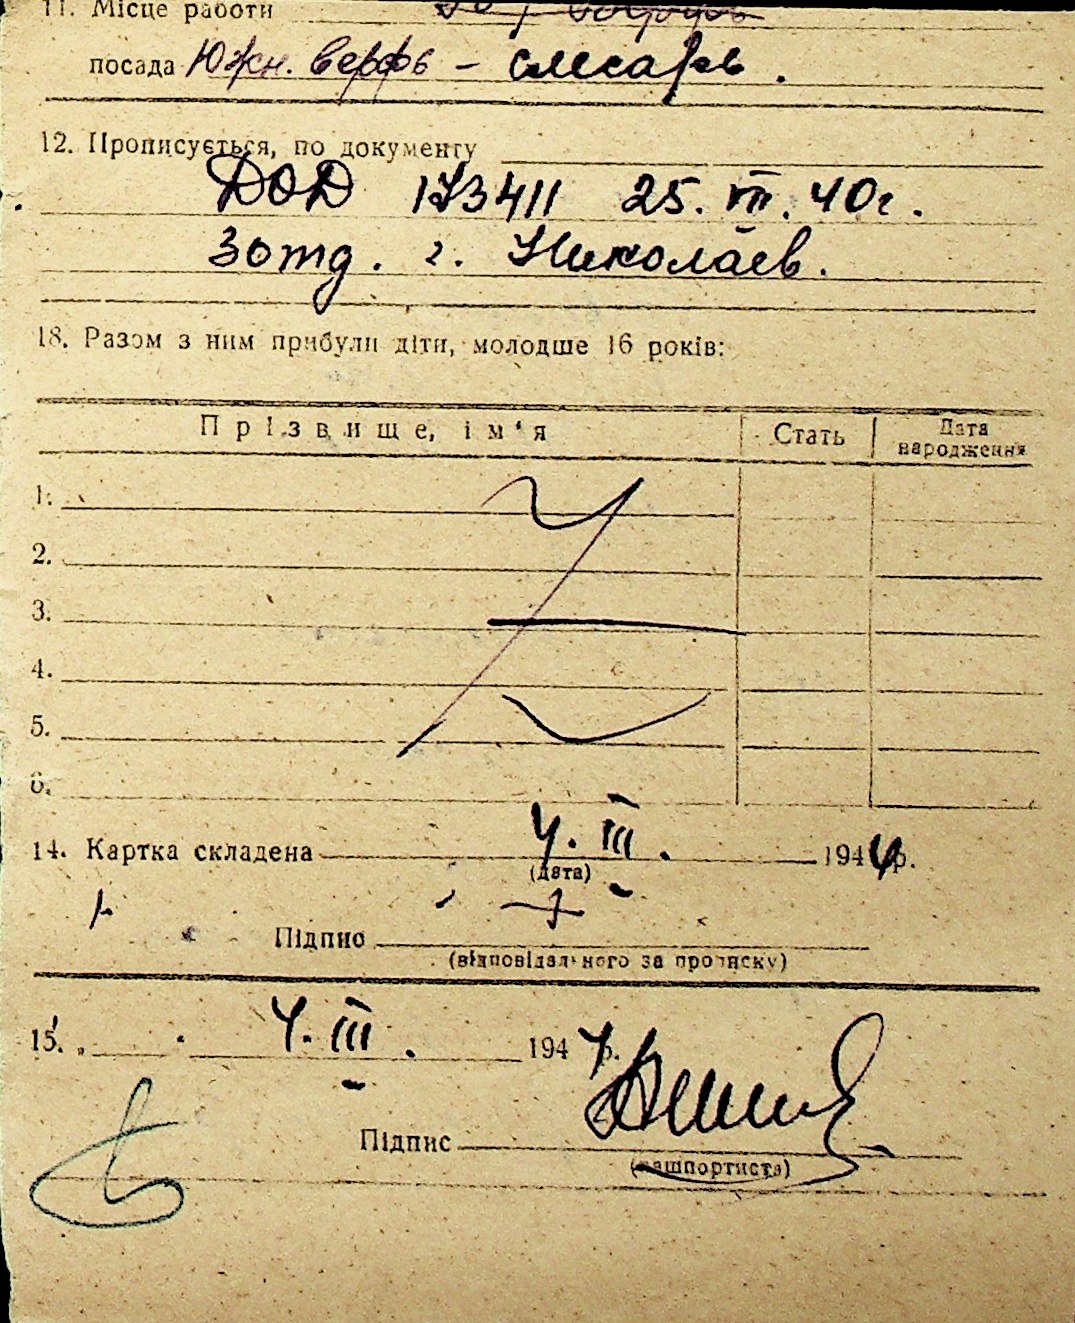 11. Місце работи
посада Южн. верфь - слесарь.
12. Прописується, по документу
ДОД 173411 25. VII. 40г.
3 отд. г. Николаев.
18. Разом з ним прибули діти, молодше 16 років:
Прізвище, ім'я Стать Дата народження
1.
2.
3.
4.
5.
6.
14. Картка складена 4. III. 1944 р.
(дата)
Підпис
(відповідального за прописку)
15. „ 4. III. 194 р.
Підпис
(пашпортиста)